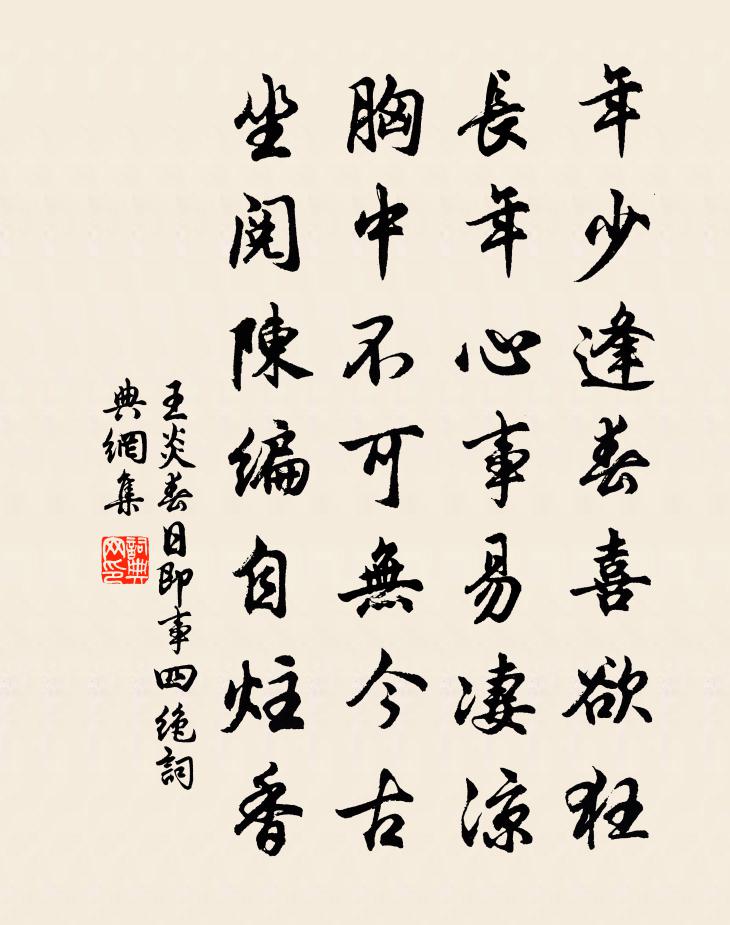 年少逢春喜欲狂
長年心事易凄涼
胸中不可無今古
坐閱陳編自炷香
王炎春日即事四絶詞
典網集
詞典網印